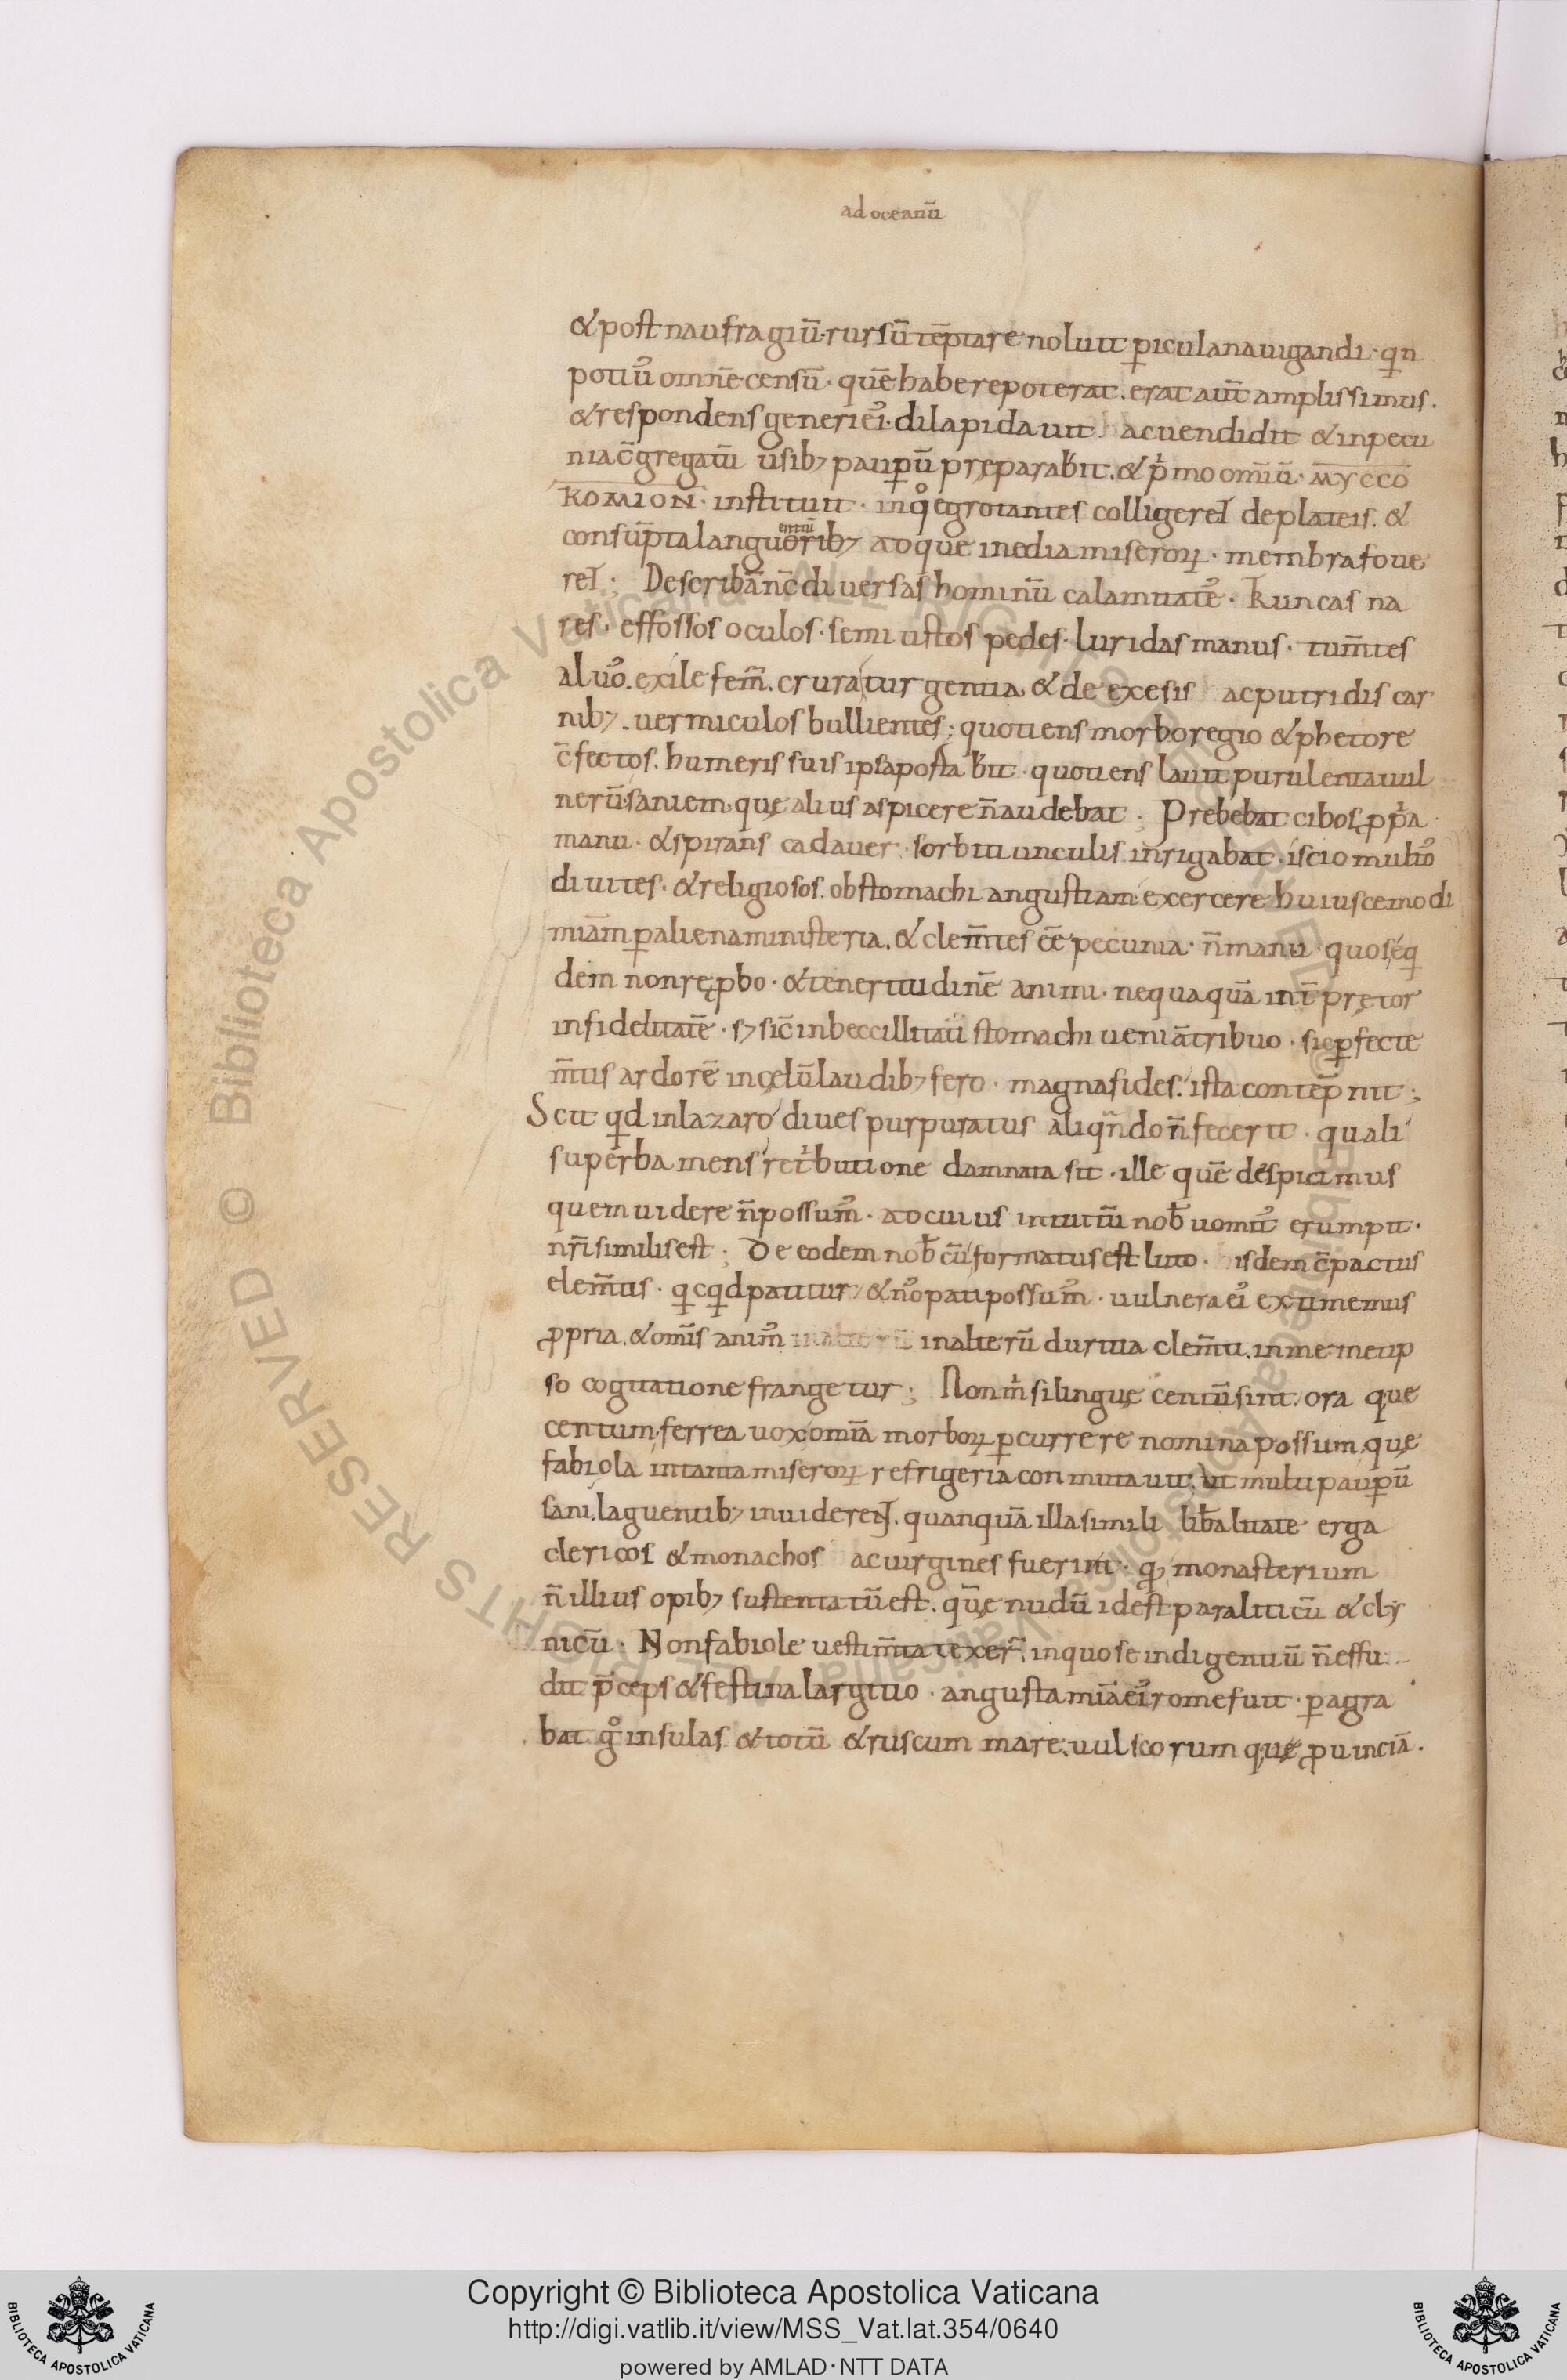 ad oceanū
& post naufragiū· rursū tēptare noluit ꝑicula nauigandi· qͥn
potiuꝰ omnē censū· quē habere poterat· erat aut̄ amplissimus·
& respondens generi eiꝰ· dilapidauit ac uendidit & in pecu
nia c̄gregatū usibꝫ pauꝑū pręparab̓it· & pͥmo omīū· M̅Y̅C̅C̅O̅
KOMION· instituit· in qͦ egrotantes colligeret̓ de plateis· &
consūpta languoribꝫ atque inedia miseroꝝ· membra foue
ret̓; Describā nc̄ diuersas hominū calamitateꝰ· truncas na
res· effossos oculos· semi ustos pedes· luridas manus· tum̄tes
aluoꝰ· exile fem̄· crura turgentia & de exesis ac putridis car
nibꝫ· uermiculos bullientes; quotiens morbo regio & phetore
c̄fectos· humeris suis ipsa portab̓it· quotiens lauit purulenta uul
nerū saniem quę alius aspicere n̄ audebat; Prebebat cibos ꝓpͥa
manu· & spirans cadauer· sorbitiunculis inrigabat· scio multoꝰ
diuites· & religiosos· ob stomachi angustiam exercere huiuscemodi
miām ꝑ aliena ministeria· & clem̄tes eē pecunia· n̄ manu· quos eqͥ
dem non reꝓbo· & teneritudinē animi· nequaquā int̄pretor
infidelitatē· sꝫ sic̄ inbeccillitati stomachi ueniā tribuo· sic ꝑfecte
m̄tis ardorē in cęlū laudibꝫ fero· magna fides· ista contēpnit;
Scit qͥd in lazaro diues purpuratus aliqn̄do n̄ fecerit· quali
superba mens retͥbutione damnata sit· ille quē despicimus
quem uidere n̄ possumꝰ· ad cuius intuitū nob̄ uomitꝰ erumpit·
nr̄i similis est; De eodem nob̄cū formatus est luto· isdem c̄pactus
elem̄tis· qͥcqͥd patitur & noꝰ pati possumꝰ· uulnera eiꝰ extimemus
ꝓpria· & omīs animꝰ in alterū duritia clem̄ti· in me metip
so cogitatione frangetur; Non m̄ si linguę centū sint ora que
centum· ferrea uox omīa morboꝝ ꝑcurrere nomina possum· quę
fabiola in tanta miseroꝝ refrigeria conmutauit· ut multi pauꝑū
sani· laguentibꝫ inuiderent̓· quanquā illa simili lib̓alitate erga
clericos & monachos ac uirgines fuerint· qͦ monasterium
n̄ illius opibꝫ sustentatū est· quē nudū id est paraliticū & cly
nicū· Non fabiole uestim̄ta texer̄· in quo se indigentiū n̄ effu
dit p̄ceps & festina largitio· angusta mīa eiꝰ rome fuit· ꝑagra
bat gͦ insulas & totū &ruscum mare· uulscorum quę ꝓuinciā·
Copyright © Biblioteca Apostolica Vaticana
http://digi.vatlib.it/view/MSS_Vat.lat.354/0640
powered by AMLAD·NTT DATA